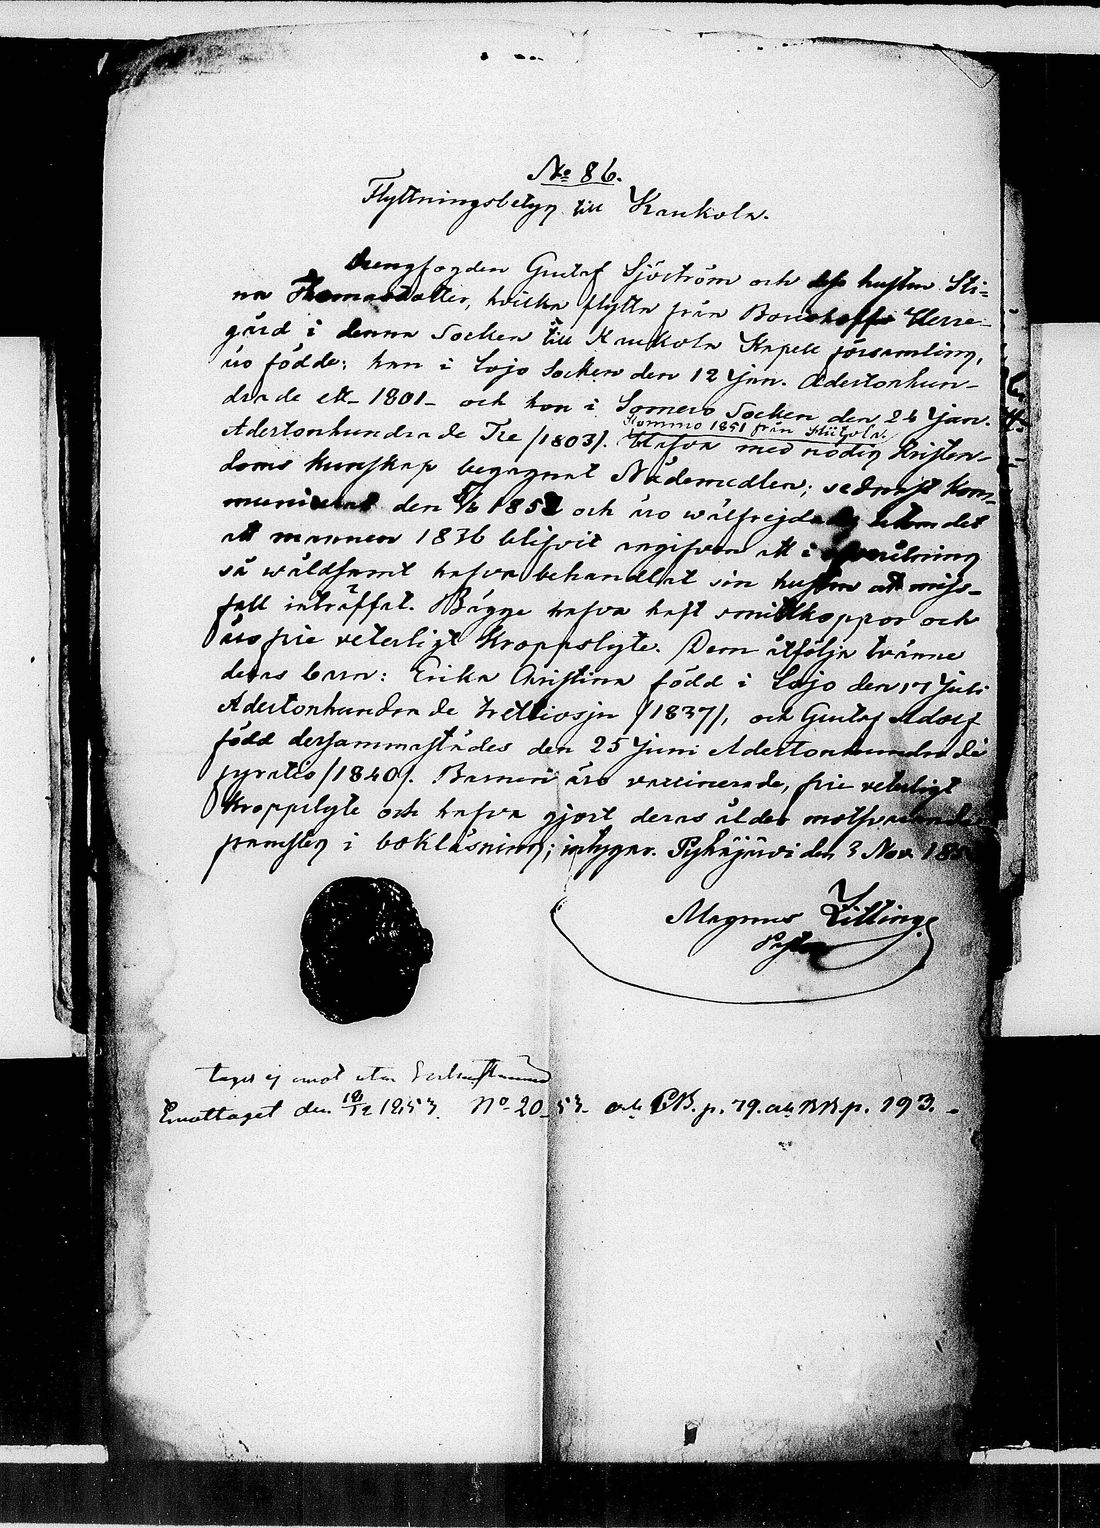 No 86.
Flyttningsbetyg till Kaukola.
Drengfogden Gustaf Sjöström och dess hustru Sti-
na Thomasdotter, hvilka flytta från Konnitsa Herre-
gård i denna Socken till Kaukola Kapell församling,
äro födde: han i Lojo Socken den 12 Jan. Adertonhun-
drade ett - 1801 - och hon i Somero Socken den 24 Jan.
Adertonhundrade Tre /1803/. Hafva med nödig Kristen-
Kommo 1851 från Hiitola.
doms kunskap begagnat Nådemedlen; sednast Kom-
municerat den 185 och äro wälfrejdade utom det
att mannen 1836 blifvit angifven att i
så wåldsamt hafva behandlat sin hustru att miss-
fall inträffat. Bägge hafva haft smittkoppor och
äro frie veterligt Kroppslyte. Dem åtfölja tvänne
deras barn: Erika Christina född i Lojo den 17 Juli
Adertonhundrade trettiosju /1837/, och Gustaf Adolf
född dersammastädes den 25 Juni Adertonhundrade
fyratio /1840/. Barnen äro vaccinerade, frie veterligt
Kroppslyte och hafva gjort deras ålder motsvarande
framsteg i bokläsning; intygar. Pyhäjärvi den 3 Nov. 185
Magnus Zitting
Pastor
tages ej emot utan
Emottaget den 18/12 1853. No 20 53 och CB. p. 79. och RB p. 193.